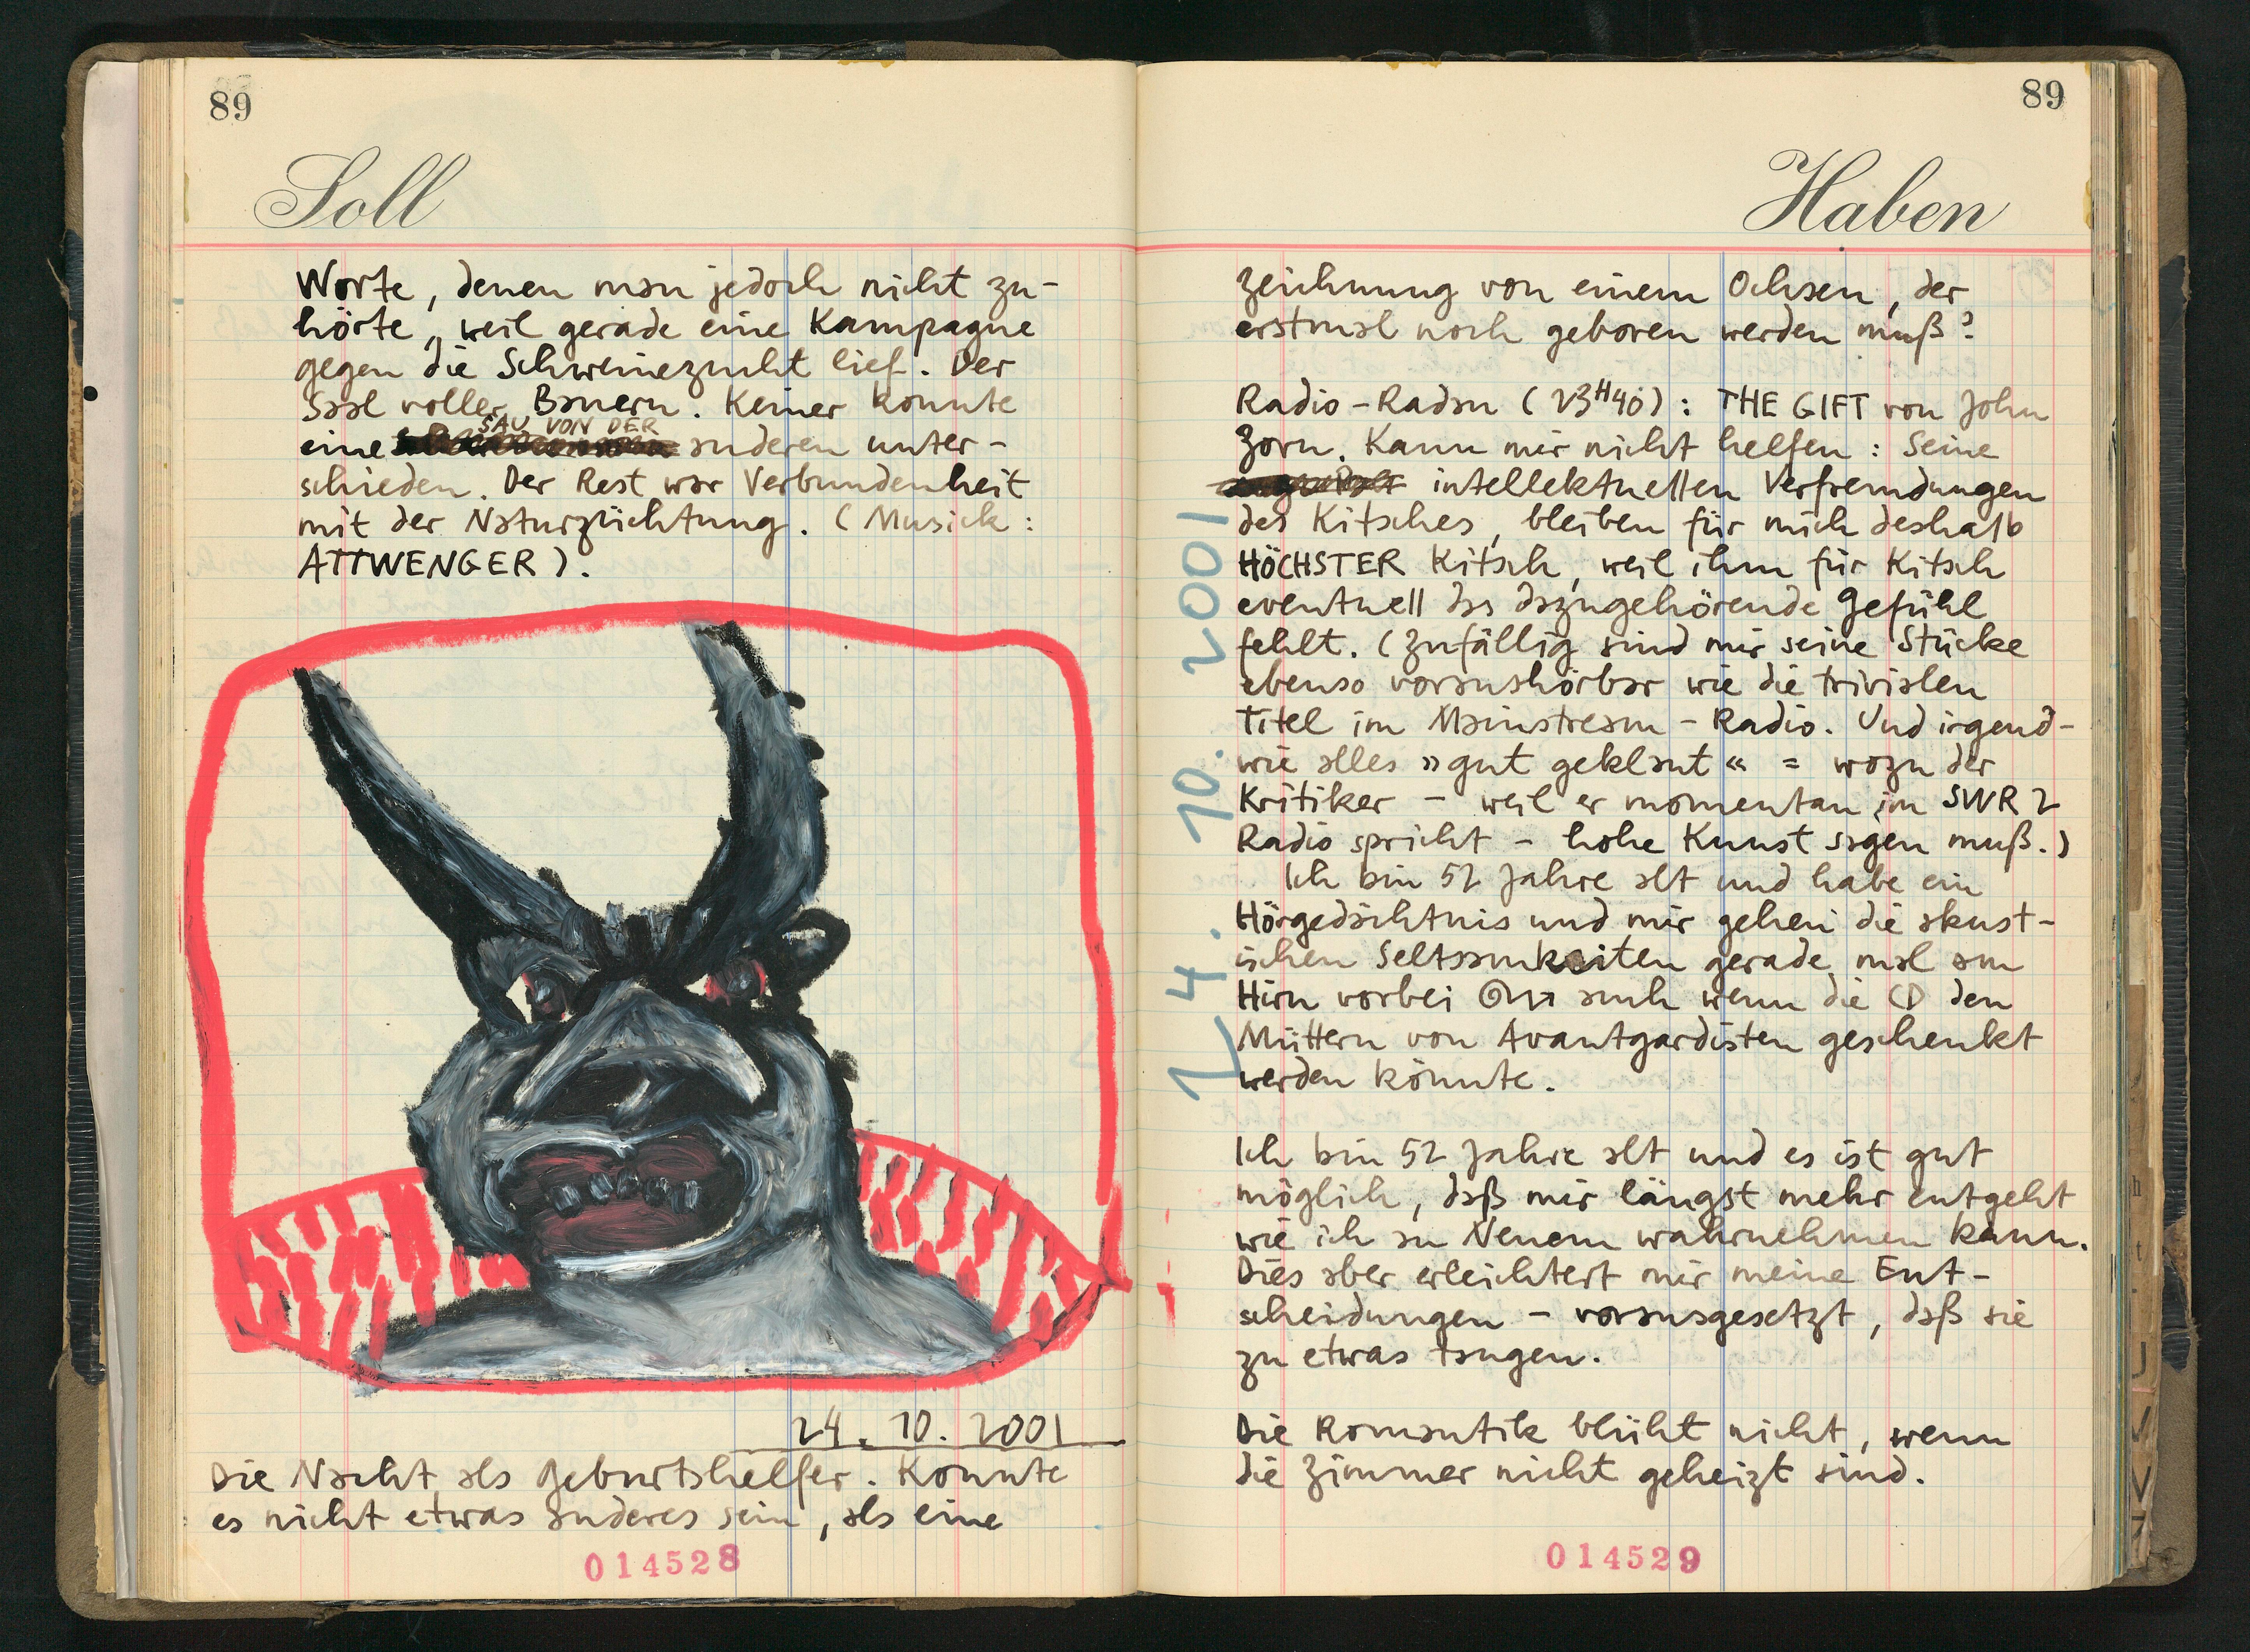 89
Soll
Worte, denen man jedoch nicht zu-
hörte, weil gerade eine Kampagne
gegen die Schweinezucht lief. Der
Saal voller Bauern. Keiner konnte
SAU VON DER
eine anderen unter-
schieden. Der Rest war Verbundenheit
mit der Naturzüchtung. (Musick:
ATTWENGER).
24. 10. 2001
Die Nacht als Geburtshelfer. Konnte
es nicht etwas anderes sein, als eine
014528
89
Haben
zeichnung von einem Ochsen, der
erstmal noch geboren werden muß?
Radio-Radau (23H40): THE GIFT von John
Zorn. Kann mir nicht helfen: Seine
intellektuellen Verfremdungen
des Kitsches, bleiben für mich deshalb
HÖCHSTER Kitsch, weil ihm für Kitsch
eventuell das dazugehörende Gefühl
fehlt. (Zufällig sind mir seine Stücke
ebenso voraushörbar wie die trivialen
Titel im Mainstream-Radio. Und irgend-
wie alles »gut geklaut« = wozu der
Kritiker - weil er momentan im SWR 2
Radio spricht - hohe Kunst sagen muß.)
Ich bin 52 Jahre alt und habe ein
Hörgedächtnis und mir gehen die akust-
ischen Seltsamkeiten gerade mal am
Hirn vorbei auch wenn die CD den
Müttern von Avantgardisten geschenkt
werden könnte.
Ich bin 52 Jahre alt und es ist gut
möglich, daß mir längst mehr entgeht
wie ich an Neuem wahrnehmen kann.
Dies aber erleichtert mir meine Ent-
scheidungen - vorausgesetzt, daß sie
zu etwas taugen.
Die Romantik blüht nicht, wenn
die Zimmer nicht geheizt sind.
24. 10. 2001
014529